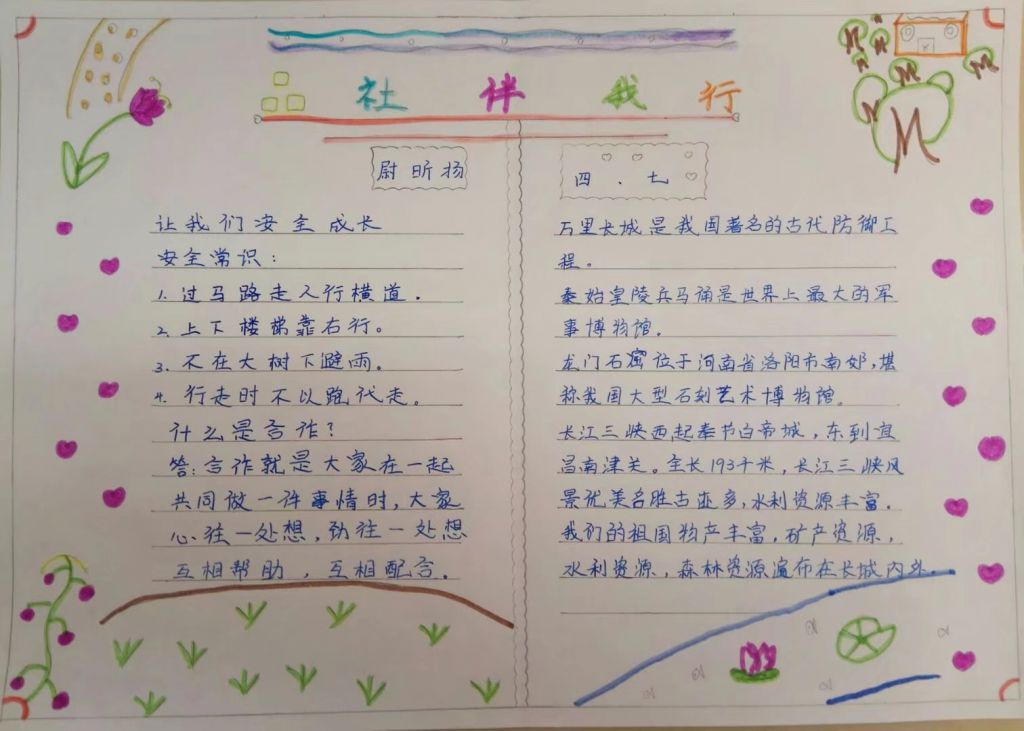 社 伴 我 行
尉昕扬
让我们安全成长
安全常识：
1. 过马路走人行横道.
2. 上下楼梯靠右行。
3. 不在大树下避雨。
4. 行走时不以跑代走。
什么是合作？
答：合作就是大家在一起
共同做一件事情时，大家
心往一处想，劲往一处想
互相帮助，互相配合.
四、七
万里长城是我国著名的古代防御工
程。
秦始皇陵兵马俑是世界上最大的军
事博物馆。
龙门石窟位于河南省洛阳市南郊，堪
称我国大型石刻艺术博物馆。
长江三峡西起奉节白帝城，东到宜
昌南津关。全长193千米，长江三峡风
景优美名胜古迹多，水利资源丰富.
我们的祖国物产丰富，矿产资源，
水利资源，森林资源遍布在长城内外.
M
M
M
M
M
M